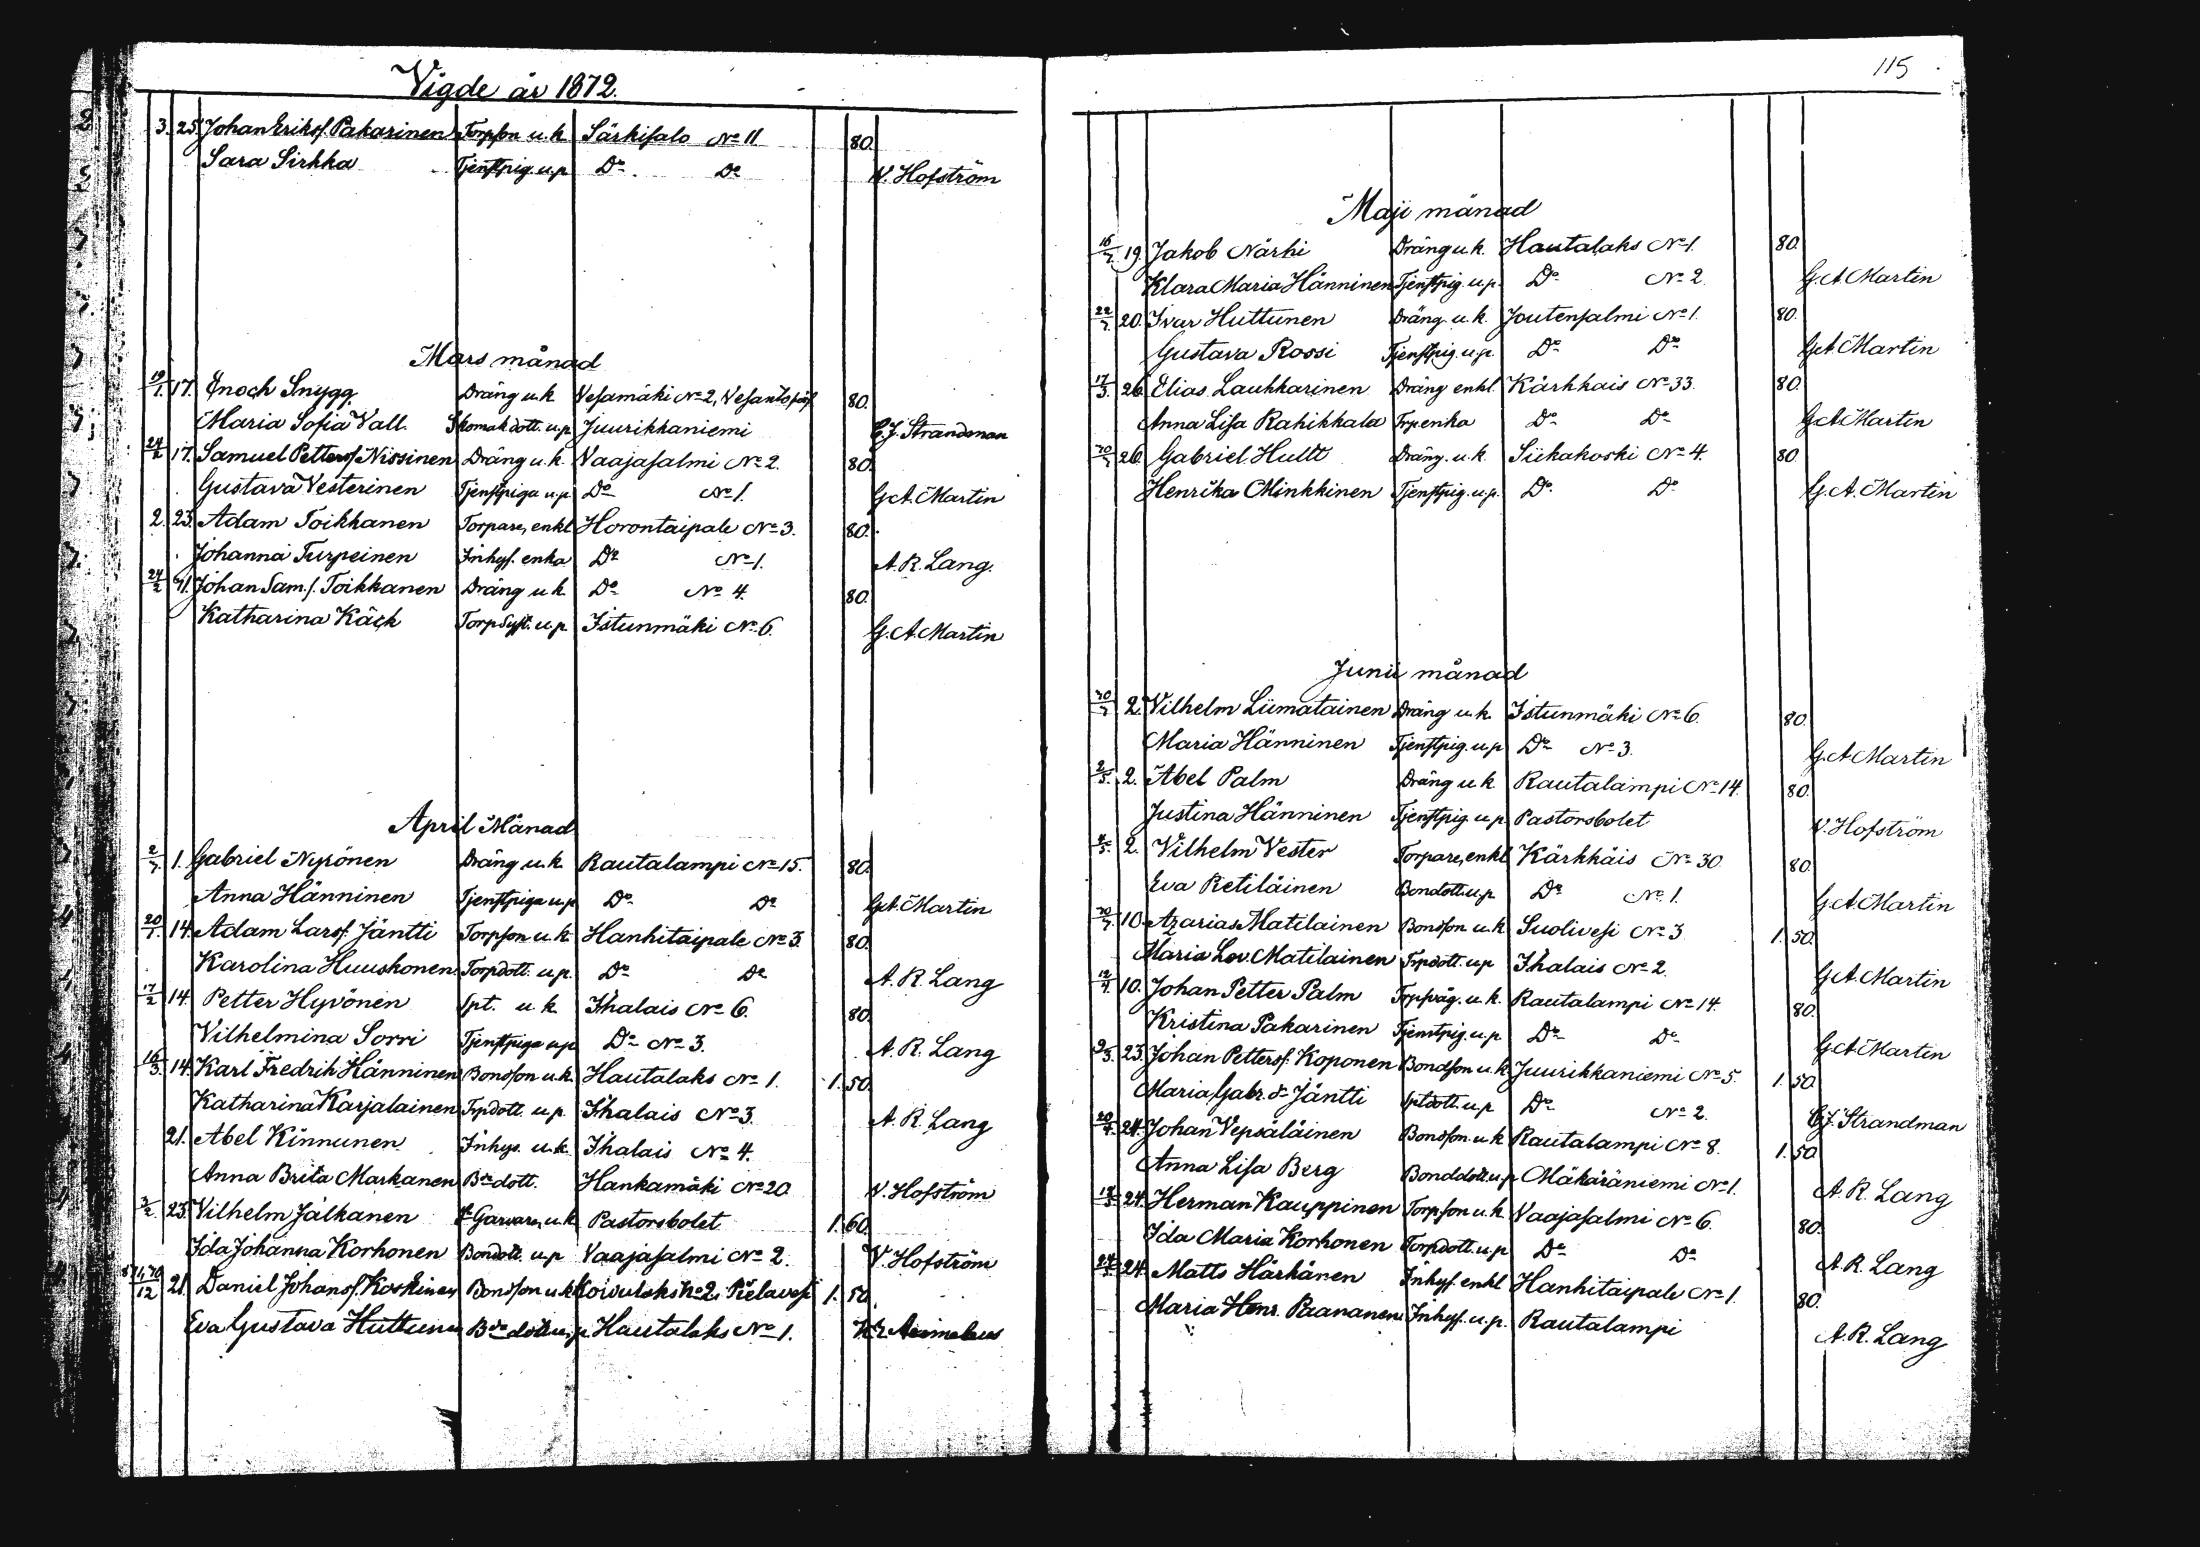 Vigde år 1872.
3. 25. Johan Erikss. Pakarinen Torpson u.k. Särkisalo No 11. 80.
Sara Sirkka Tjenstpig. u.p. Do Do V. Hofström
Mars månad
19/1. 17. Enoch Snygg Dräng u.k. Vesamäki No 2, Vesanto 80.
Maria Sofia Vall. Skomak dott. u.p. Juurikkaniemi C.J. Strandman
24/2 17. Samuel Petterss. Nissinen Dräng u.k. Vaajasalmi No 2. 80.
Gustava Vesterinen Tjenstpiga u.p. Do No 1. G.A. Martin
2. 23. Adam Toikkanen Torpare, enkl Horontaipale No 3. 80.
Johanna Turpeinen Inhys. enka Do No 1. A.R. Lang.
24/2 Johan Sam.s. Toikkanen Dräng u.k. Do No 4. 80.
Katharina Käck Torp Syst. u.p. Istunmäki No 6. G.A. Martin
April Månad
2/7. 1. Gabriel Nyrönen Dräng u.k. Rautalampi No 15. 80.
Anna Hänninen Tjenstpiga u.p. Do Do G.A. Martin
20/1. 14. Adam Larss. Jäntti Torpson u.k. Hanhitaipale No 3. 80.
Karolina Huuskonen Torpdott. u.p. Do Do A.R. Lang
17/2 14. Petter Hyvönen Spt. u.k. Ihalais No 6. 80.
Vilhelmina Sorri Tjenstpiga u.p. Do No 3. A.R. Lang
16/3. 14. Karl Fredrik Hänninen Bondson u.k. Hautalaks No 1. 1. 50.
Katharina Karjalainen Trpdott. u.p. Ihalais No 3. A.R. Lang
21. Abel Kinnunen Inhys. u.k. Ihalais No 4.
Anna Brita Markanen Bde dott. Hankamäki No 20. V. Hofström
3/2. 23. Vilhelm Jalkanen Garvare, u.k. Pastorsbolet 1. 60.
Ida Johanna Korhonen Bondott. u.p. Vaajasalmi No 2. V. Hofström
21. Daniel Johanss. Koskinen Bondson u.k. Koivulaks No 2, Pielavesi 1. 50.
Eva Gustava Huttunen Bde dott u.p. Hautalaks No 1.
115
Maji månad
16/7. 19. Jakob Närhi Dräng u.k. Hautalaks No 1. 80.
Klara Maria Hänninen Tjenstpig. u.p. Do No 2. G.A. Martin
22/7. 20. Ivar Huttunen Dräng. u.k. Joutensalmi No 1. 80.
Gustava Rossi Tjenstpig. u.p. Do Do G.A. Martin
17/3. 26. Elias Lauhkarinen Dräng enkl. Kärkkais No 33. 80.
Anna Lisa Rahikkala Trpenka Do Do G.A. Martin
26. Gabriel Hultt Dräng. u.k. Siikakoski No 4. 80.
Henrika Minkkinen Tjenstpig. u.p. Do Do G.A. Martin
Junii månad
2. Vilhelm Liimatainen Dräng u.k. Istunmäki No 6. 80.
Maria Hänninen Tjenstpig. u.p. Do No 3. G.A. Martin
2/5. 2. Abel Palm Dräng u.k. Rautalampi No 14. 80.
Justina Hänninen Tjenstpig. u.p. Pastorsbolet V. Hofström
2. Vilhelm Vester Torpare, enkl Kärkkäis No 30 80.
Eva Pietiläinen Bondott. u.p. Do No 1. G.A. Martin
10. Azarias Matilainen Bondson u.k. Suolivesi No 3. 1. 50.
Maria Lov. Matilainen Trpdott. u.p. Ihalais No 2. G.A. Martin
10. Johan Petter Palm u.k. Rautalampi No 14. 80.
Kristina Pakarinen Tjenstpig. u.p. Do Do G.A. Martin
23. Johan Petterss. Koponen Bondson u.k. Juurikkaniemi No 5. 1. 50.
Maria Gabr. dr Jäntti Sptdott. u.p. Do No 2. C.J. Strandman
24. Johan Vepsäläinen Bondson. u.k. Rautalampi No 8. 1. 50.
Anna Lisa Berg Bonddott. u.p. Mäkäräniemi No 1. A.R. Lang
24. Herman Kauppinen Torpson u.k. Vaajasalmi No 6. 80.
Ida Maria Korhonen Torpdott. u.p. Do Do A.R. Lang
24. Matts Härkänen Inhys. enkl Hanhitaipale No 1. 80.
Maria Henr. Paananen Inhys. u.p. Rautalampi A.R. Lang